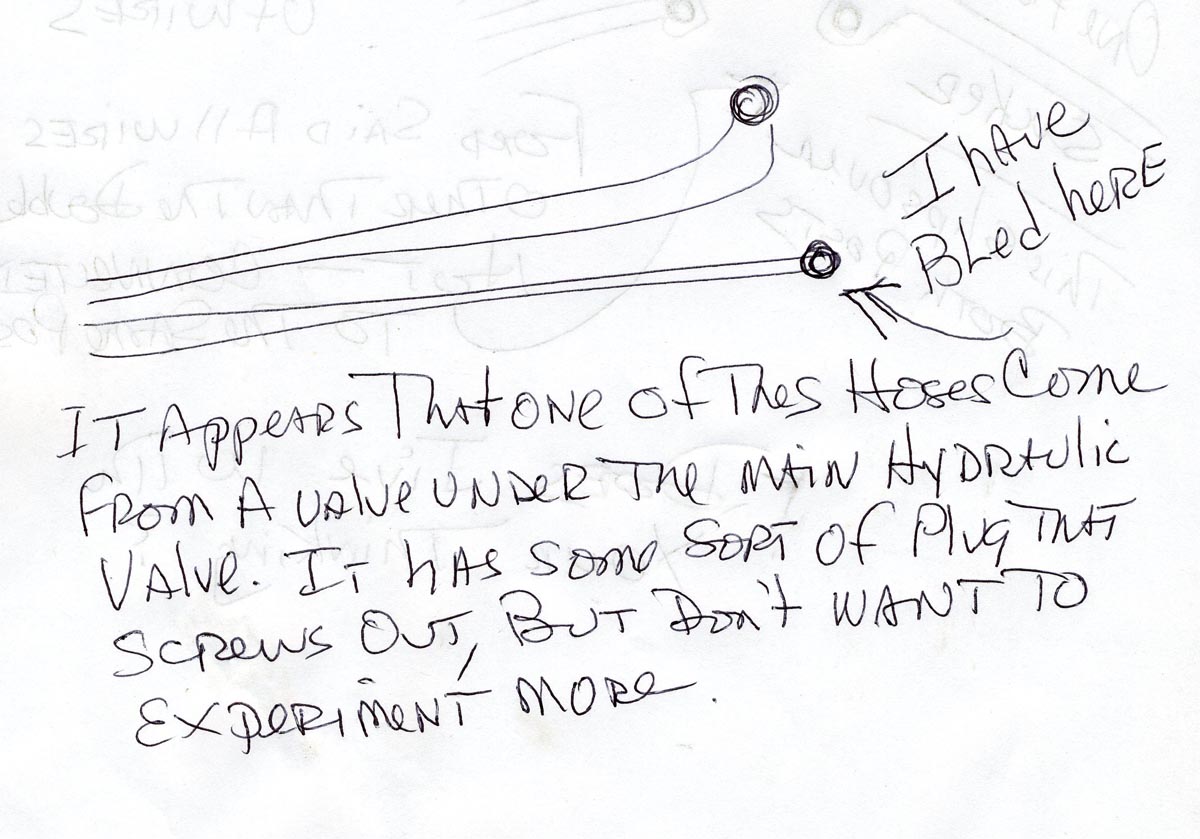 I have
Bled here
IT Appears That one of Thes Hoses Come
From A valve UNDER The MAIN HyDRAulic
Valve. IT hAS some SORT Of Plug THAT
SCREWS OUT, BUT Don't WANT TO
EXPERIMENT MORE.